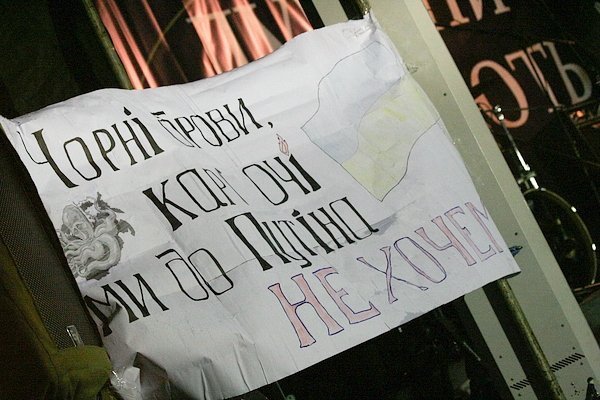 ЧОРНІ БРОВИ,
КАРІ ОЧІ
МИ ДО ПУТІНА
НЕ ХОЧЕМ